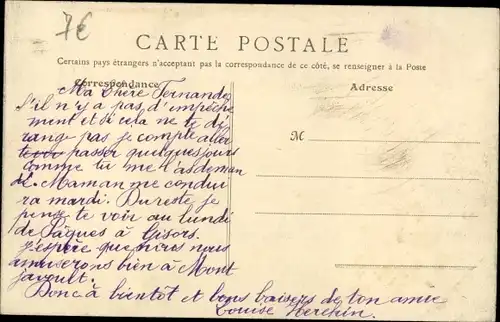 7€
CARTE POSTALE
Certains pays étrangers n'acceptant pas la correspondance de ce côté, se renseigner à la Poste
Correspondance
Adresse
M
Ma chère Fernande,
S'il n'y a pas d'empêche
ment et si cela ne te dé
range pas je compte aller
passer quelques jours
comme tu me l'as deman
dé. Maman me condui
ra mardi. Du reste je
pense te voir au lundi
de Pâques à Gisors.
J'espère que nous nous
amuserons bien à Mont
javoult.
Donc à bientôt et bons baisers de ton amie
Louise